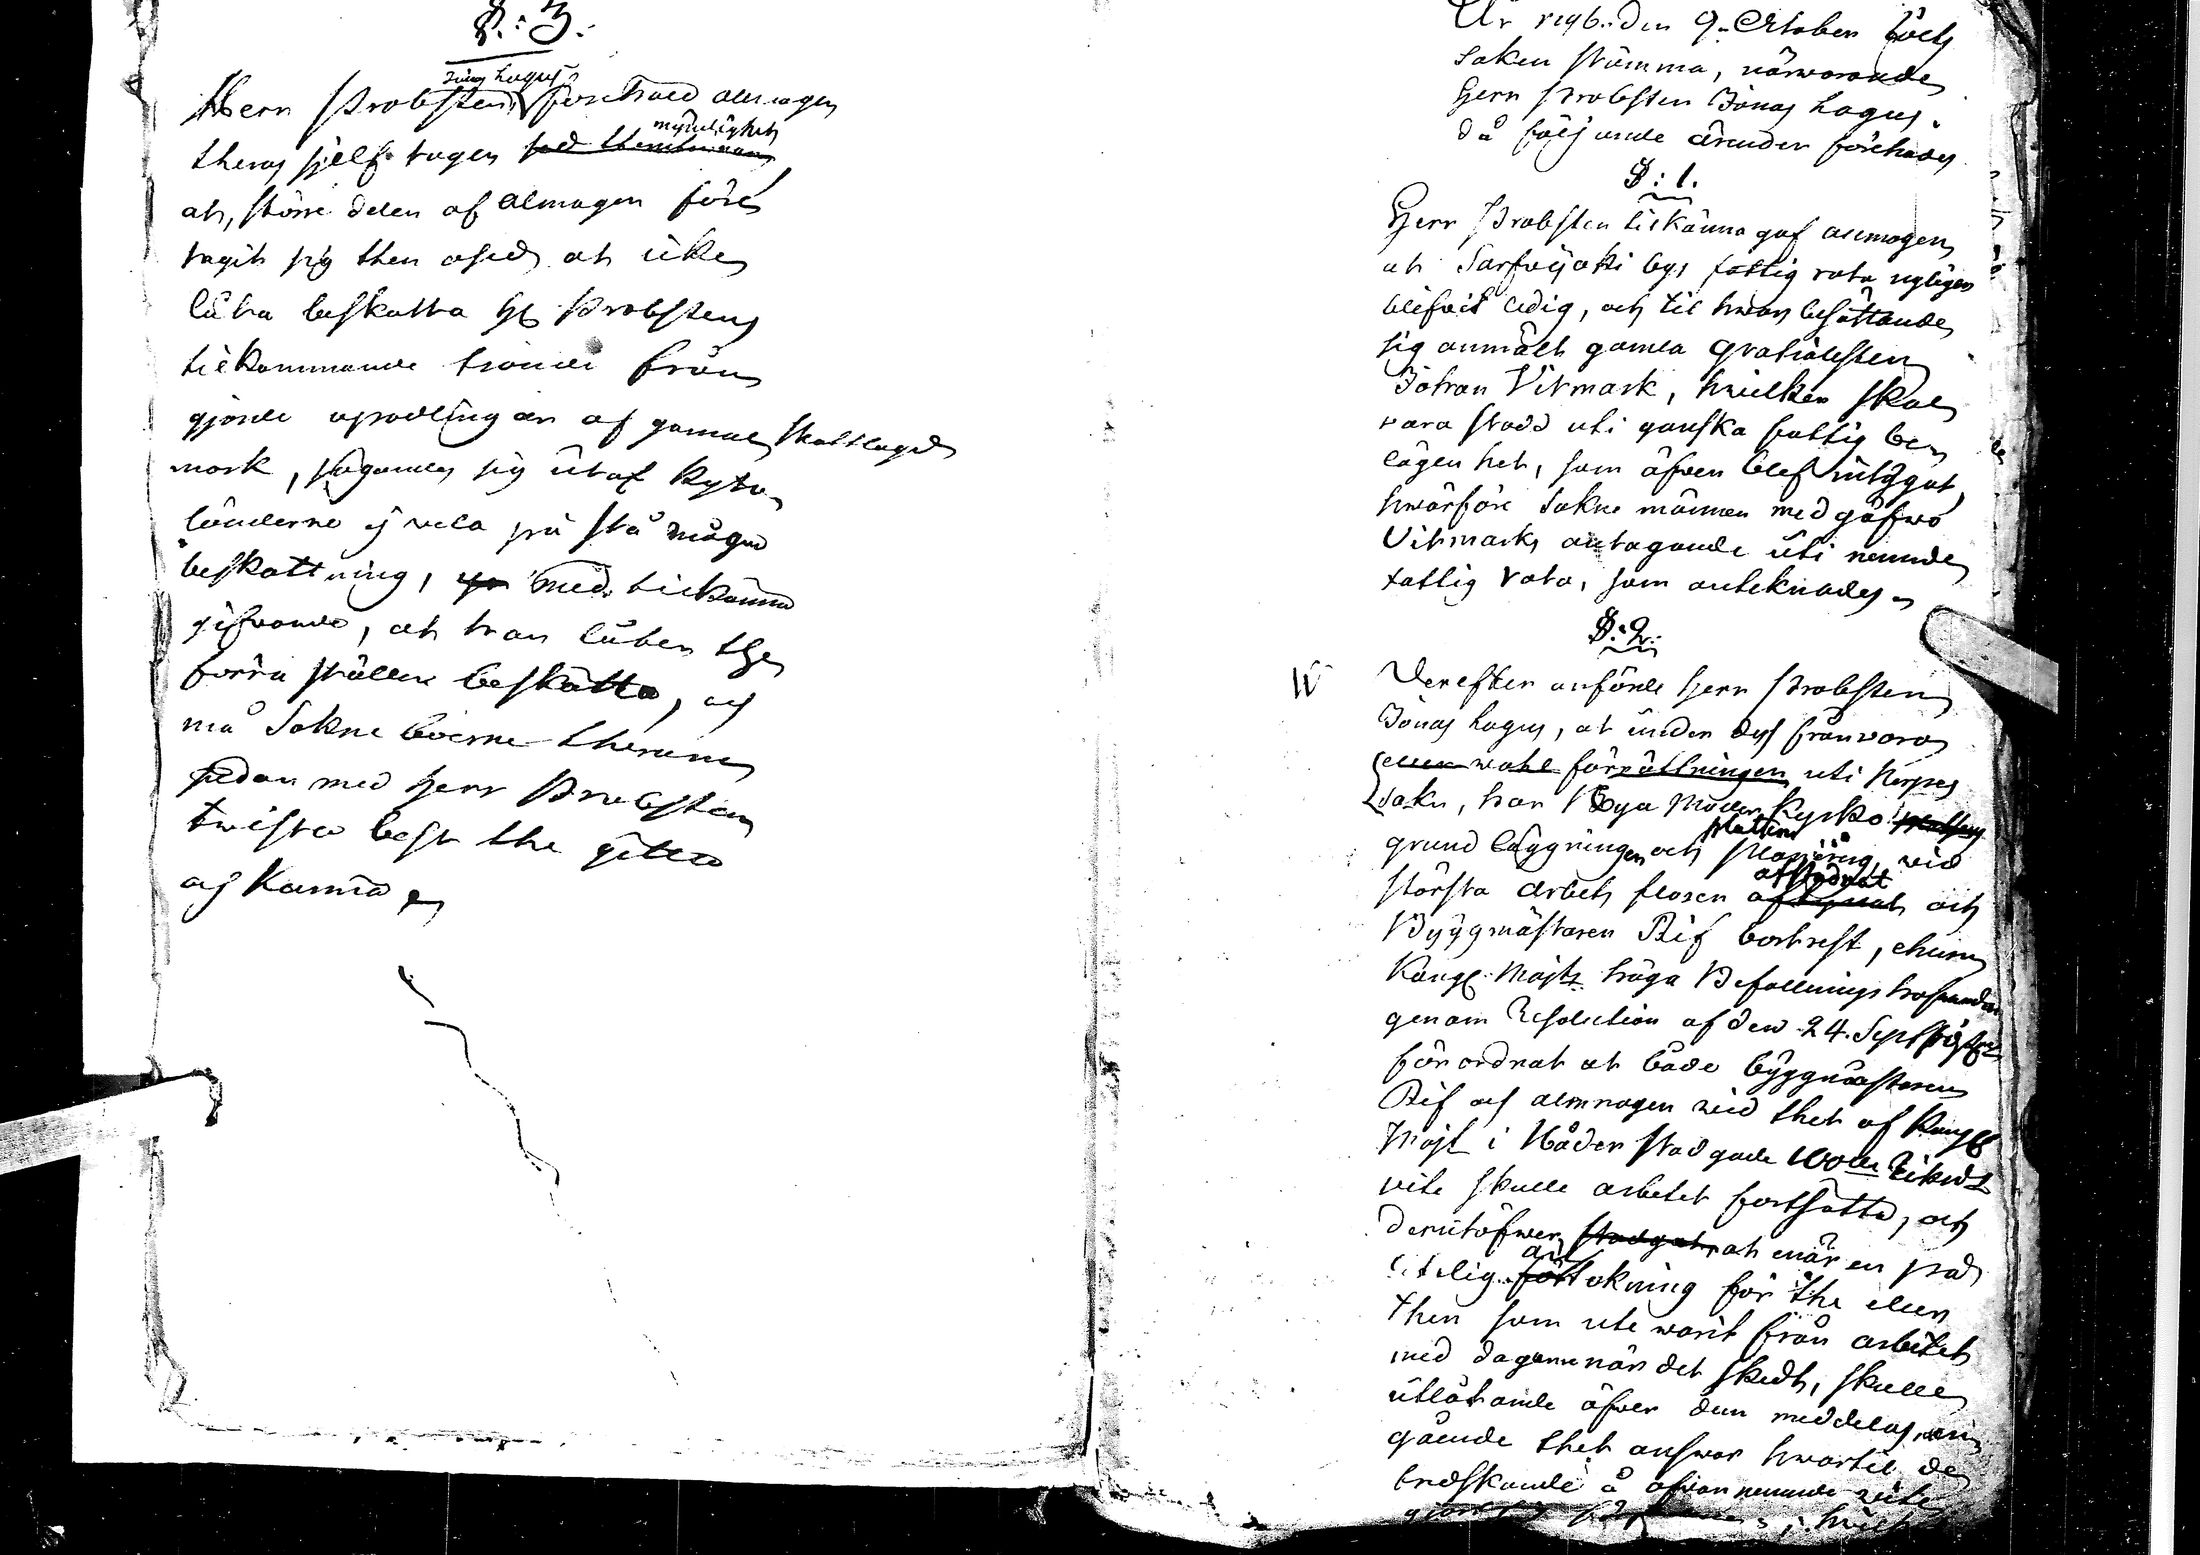 §: 3.
Jonas Lagus
Herr Probsten förehöld almogen
myndighet
theras sjelf tagen
at, större delen af almogen före
tagit sig then osed at icke
låta beskatta H: Probstens
tilkommande tionde från
gjorde upodlingar af gamal skattlagd
mark, sägandes sig utaf Kyto
länderne ej vela på stå någon
beskattning, med tilkänna
gifvande, at han låter the
förra ställen beskatta, och
må Sokne boerne therom
sedan med Herr Probsten
twista bäst the gitta
och kunna
År 1796. den 9. October hölts
Sokne stämma, närwarande
Herr Probsten Jonas Lagus,
då följande ärender förehades
§: 1.
Herr Probsten tilkänna gaf almogen
at Sarfvijoki bys fattig rota nyligen
blifvit ledig, och til hwars besättande
sig anmält gamla gratialisten
Johan Vitmark, hwilken skal
vara stadd uti ganska fattig be
lägenhet, som äfven blef intygat,
hwarföre Sokne männen med gåfwo
Vitmarks antagande uti nemnde
fattig rota, som anteknades.
§: 2.
Derefter anförde Herr Probsten
Jonas Lagus, at under des frånvaro
eller wahl förrättningen uti Kerpes
Sokn, har Nya Moder Kyrko
grund läggningen och, wid
största arbets flosen afstadnat och
Byggmästaren Rif bortrest, ehuru
Kongl: Majts höga Befallningshafvanden
genom Resolution af den 24. Sept
förordnat at både byggmästaren
Rif och almogen wid thet af Kongl
Majt i Nåder stadgade 100de Rikd:
vite skulle arbetet fortsätta, och
derutöfwer stadgat at när en på
litelig antekning för the eller
then som ute warit från arbetet
med dagarne när det skedt, skulle
utlåtande öfver dem meddelas, an
gående thet answar hwartil de
tredskande å ofvannemnde vite
gjordt sig